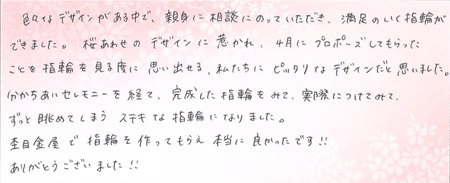 色々なデザインがある中で、親身に相談にのっていただき、満足のいく指輪が
できました。桜あわせのデザインに惹かれ、4月にプロポーズしてもらった
ことを指輪を見る度に思い出せる、私たちにピッタリなデザインだと思いました。
分かちあいセレモニーを経て、完成した指輪をみて、実際につけてみて、
ずっと眺めてしまうステキな指輪になりました。
杢目金屋で指輪を作ってもらえ本当に良かったです!!
ありがとうございました!!